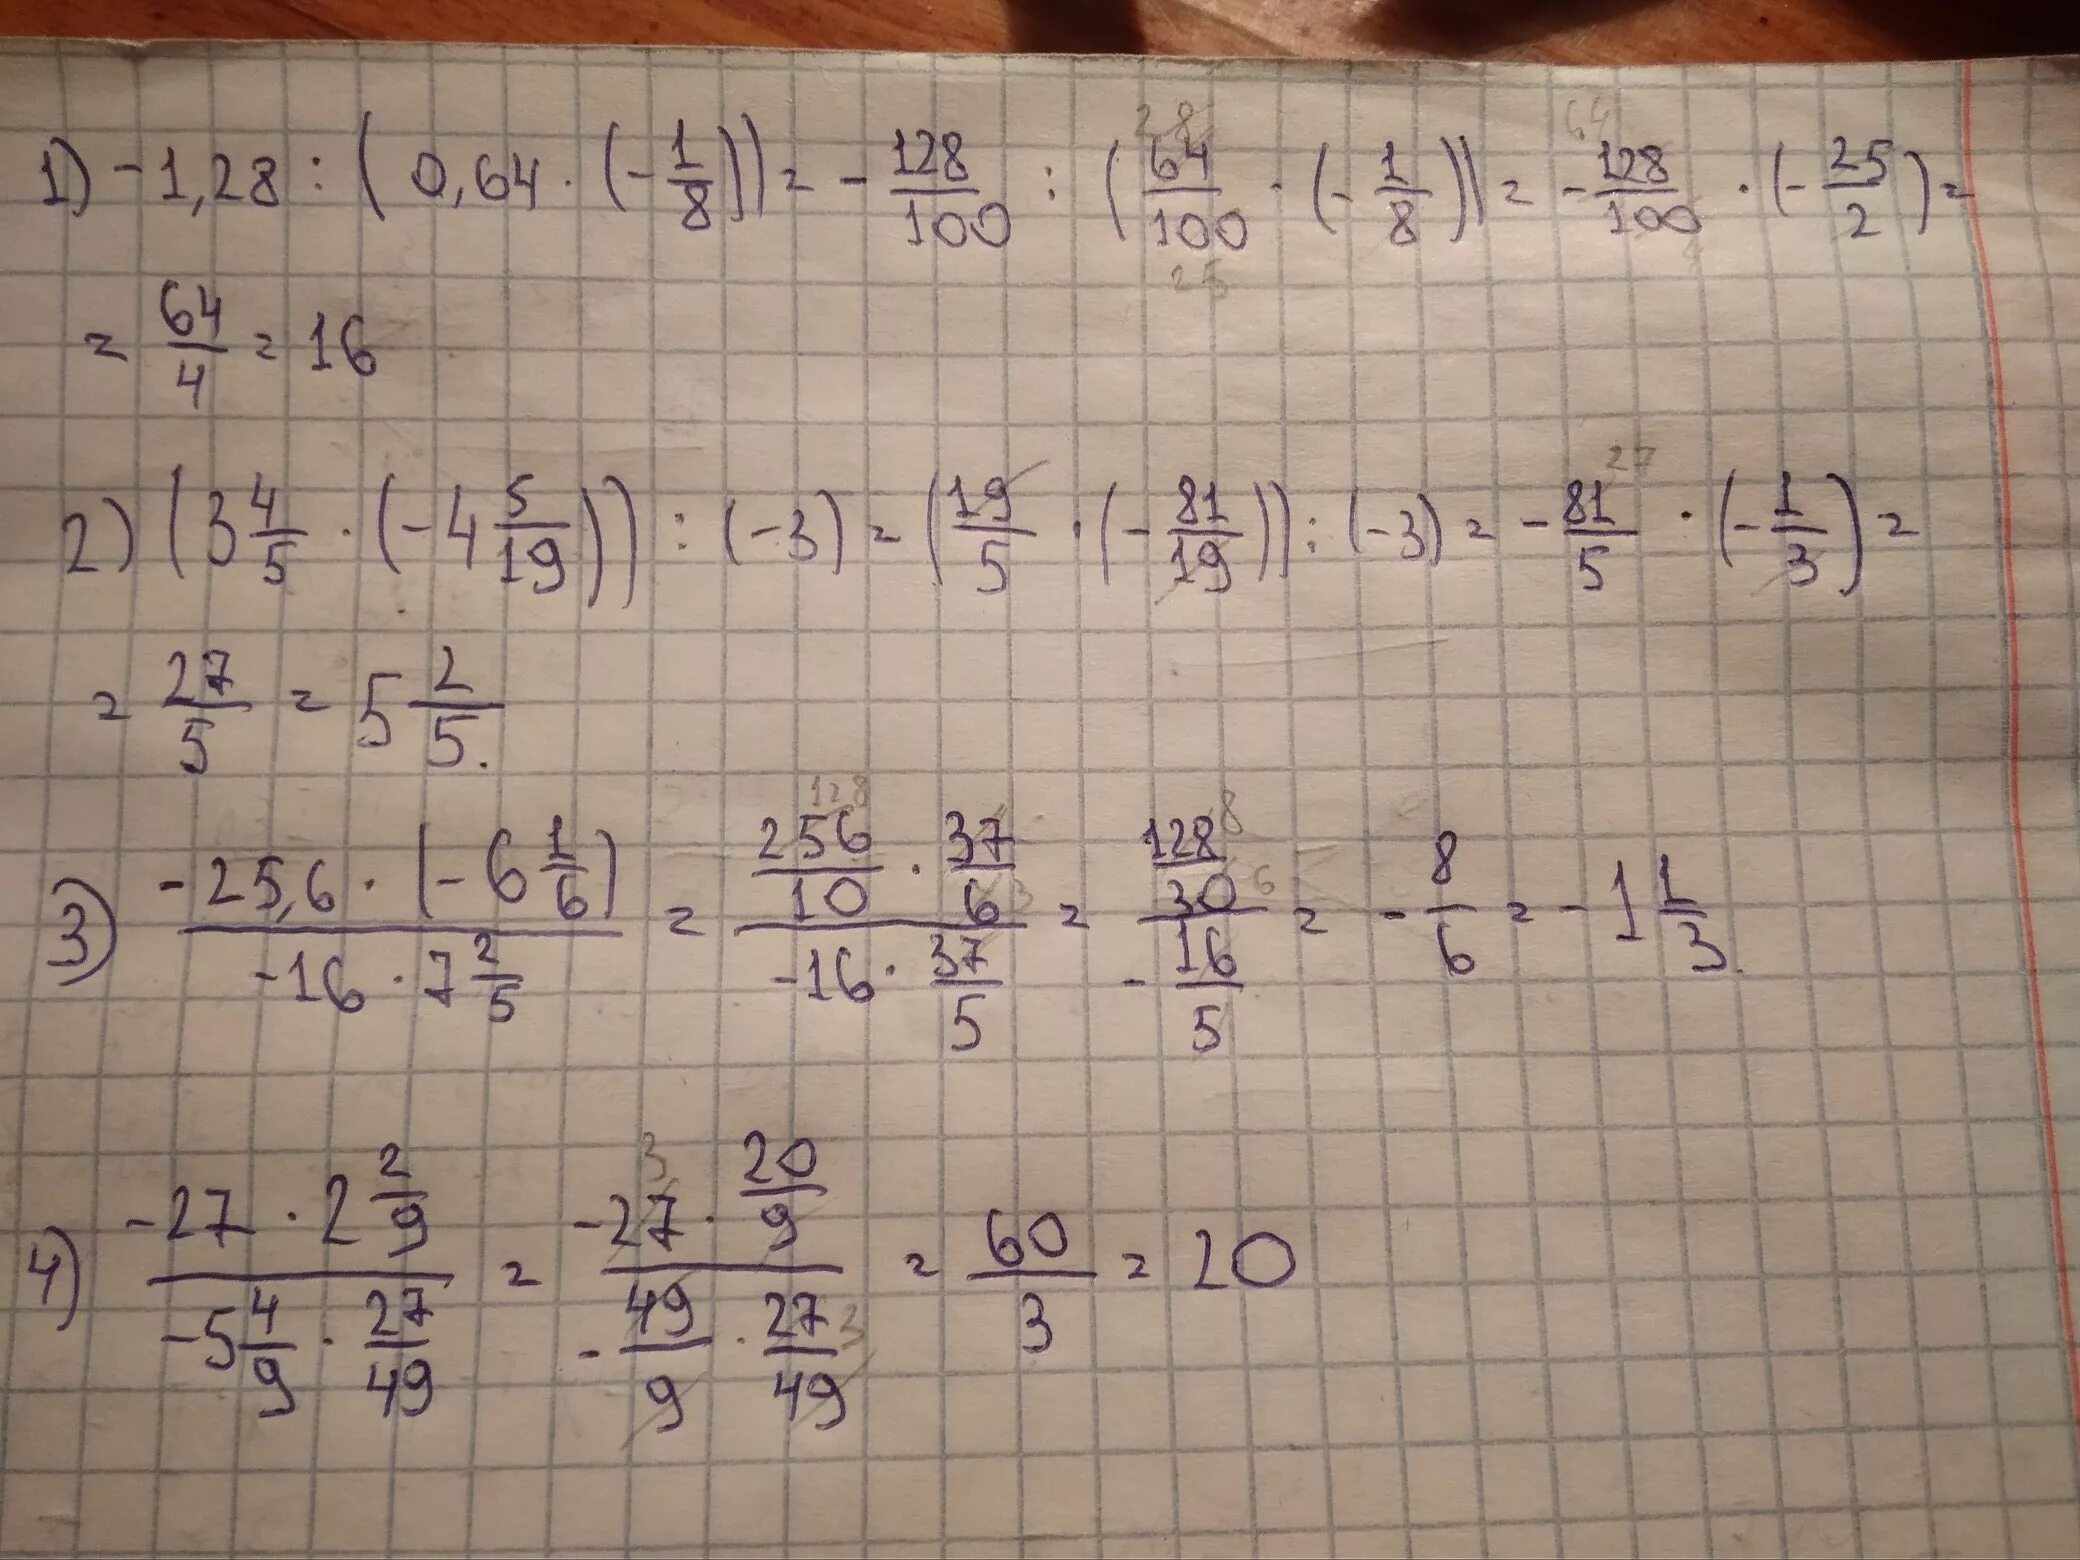 1) -1,28 : (0,64 · (-1/8)) = -128/100 : (64/100 · (-1/8)) = -128/100 · (-25/2) =
= 64/4 = 16
2) (3 4/5 · (-4 5/19)) : (-3) = (19/5 · (-81/19)) : (-3) = -81/5 · (-1/3) =
= 27/5 = 5 2/5.
3) (-25,6 · (-6 1/6))/(-16 · 7 2/5) = (256/10 · 37/6)/(-16 · 37/5) = (128/30)/(-16/5) = -8/6 = -1 1/3.
4) (-27 · 2 2/9)/(-5 4/9 · 27/49) = (-27 · 20/9)/(-49/9 · 27/49) = 60/3 = 20